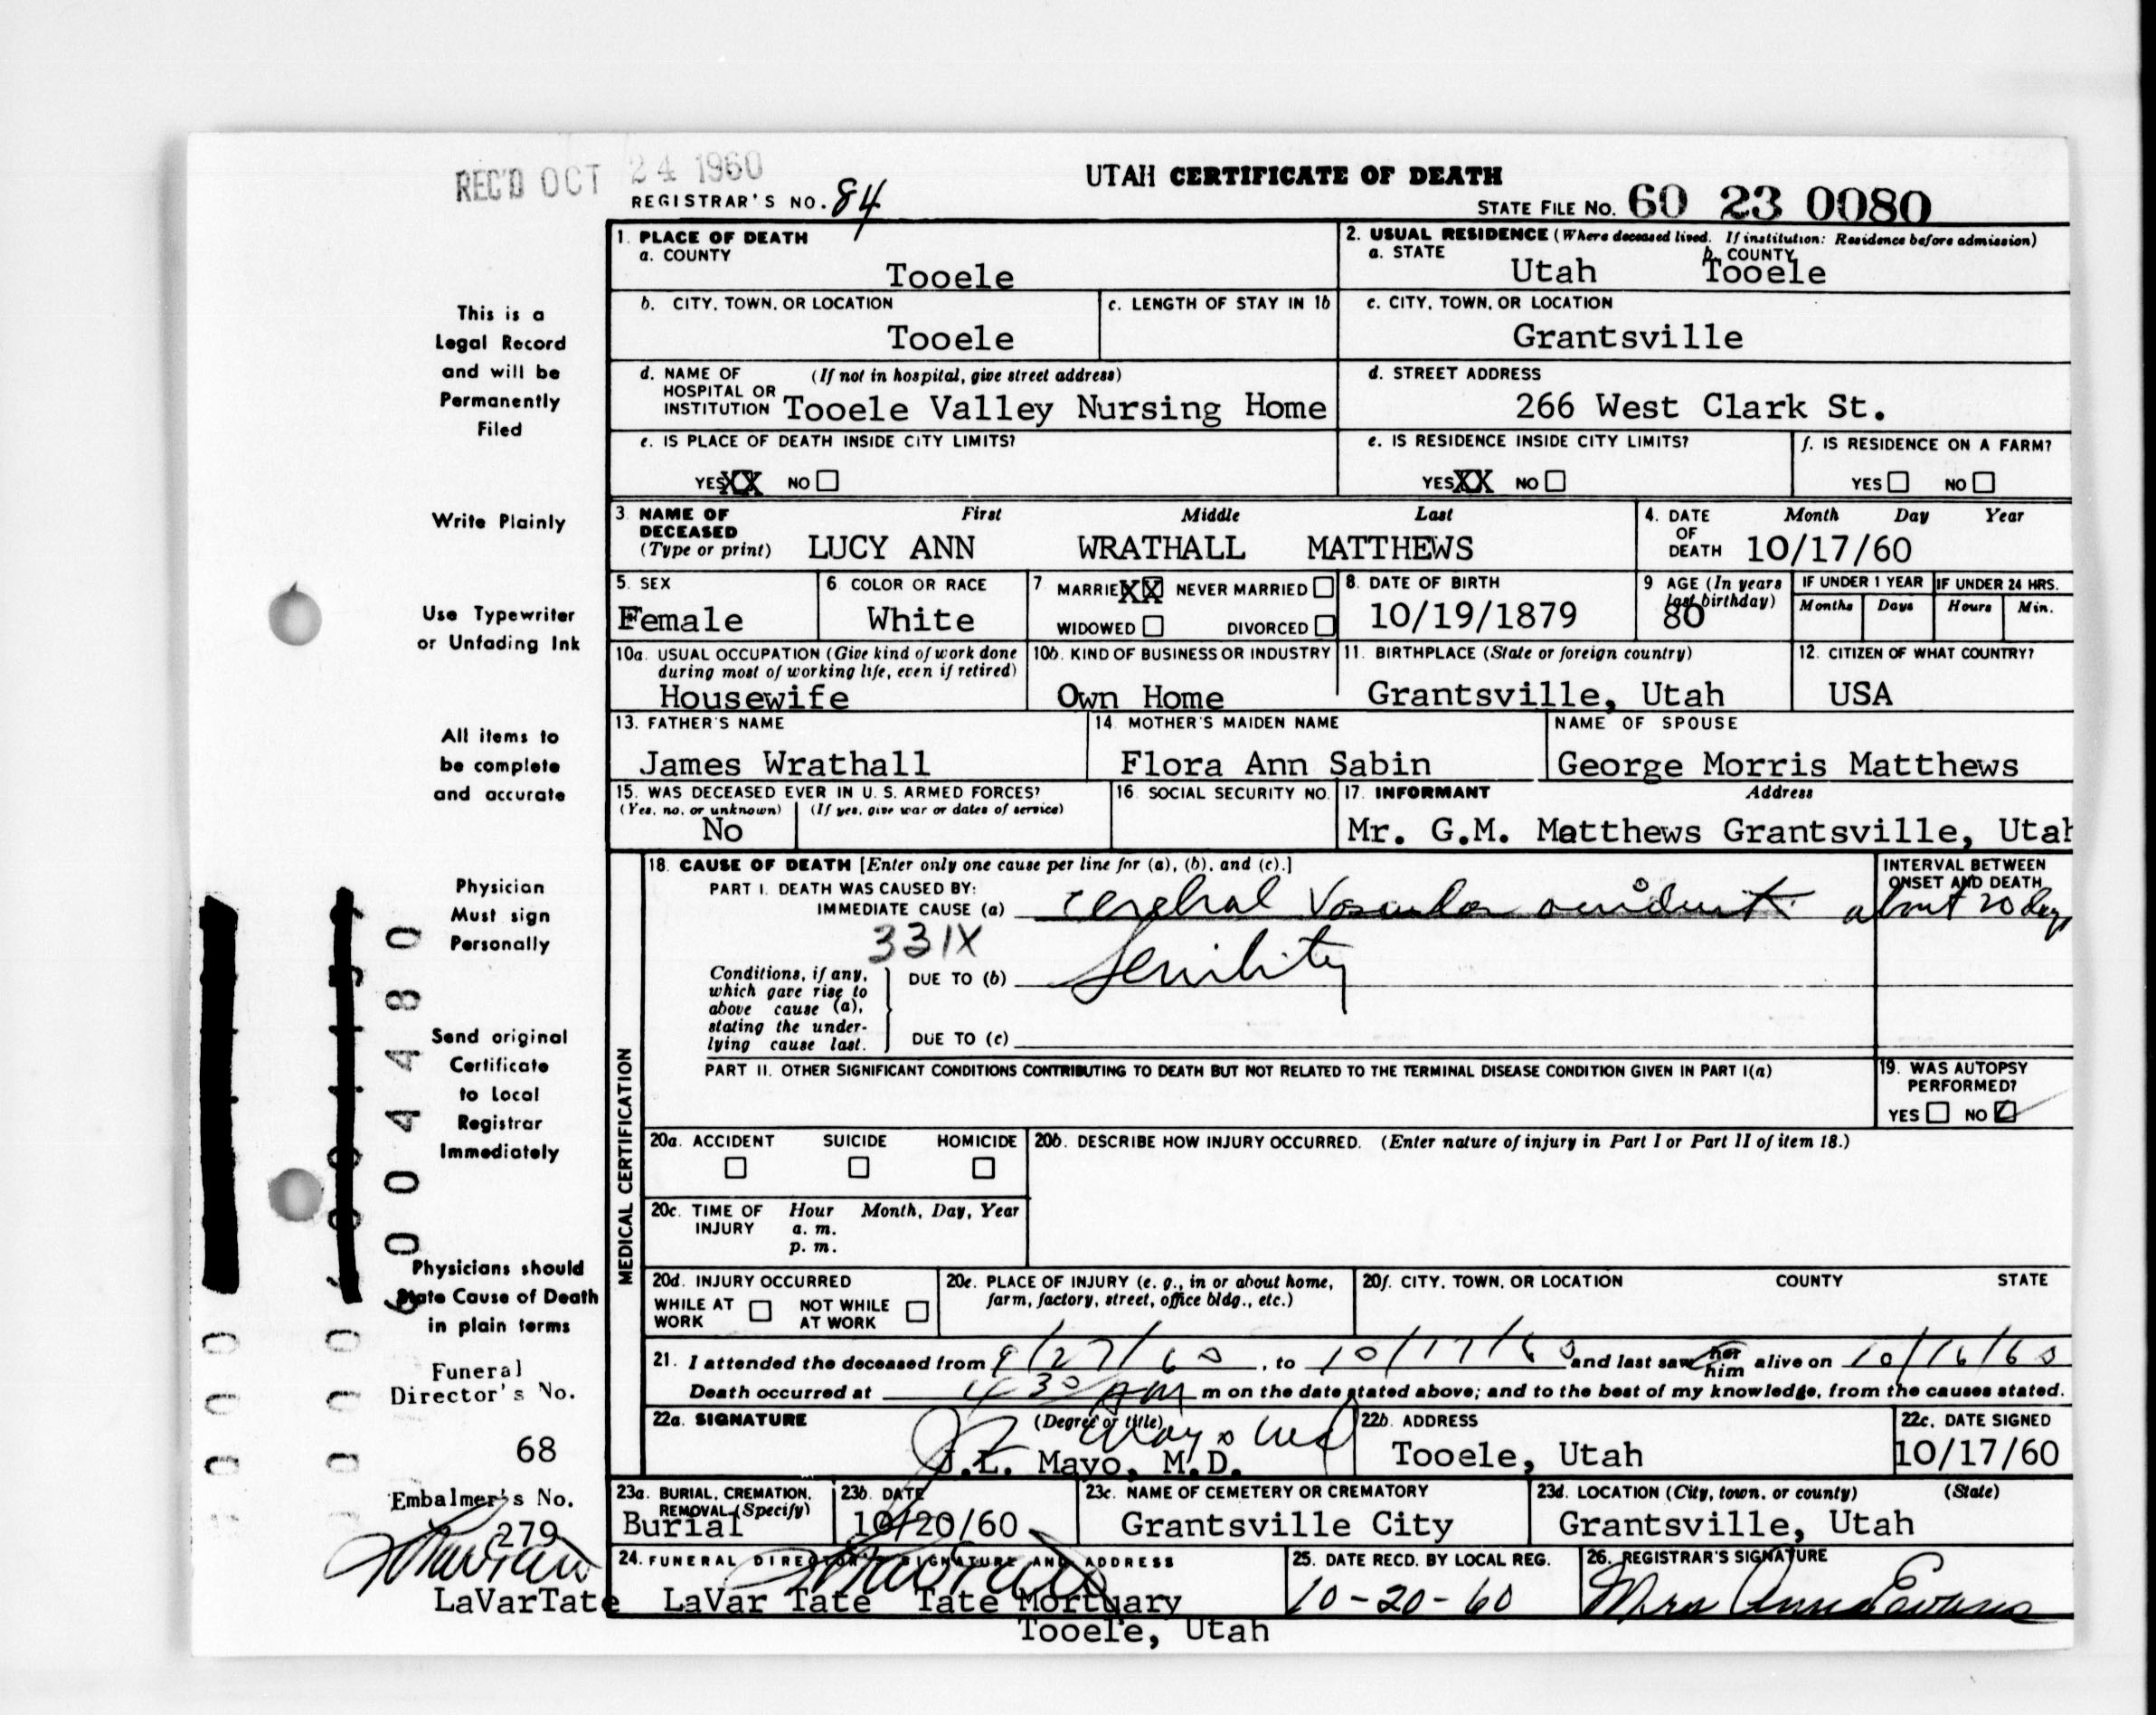 REC'D OCT 24 1960
UTAH CERTIFICATE OF DEATH
REGISTRAR'S NO. 84
STATE FILE No. 60 23 0080
This is a
Legal Record
and will be
Permanently
Filed
Write Plainly
Use Typewriter
or Unfading Ink
All items to
be complete
and accurate
Physician
Must sign
Personally
Send original
Certificate
to Local
Registrar
Immediately
Physicians should
State Cause of Death
in plain terms
Funeral
Director's No.
68
Embalmer's No.
279
LaVarTate
6004480
1. PLACE OF DEATH
a. COUNTY
Tooele
2. USUAL RESIDENCE (Where deceased lived. If institution: Residence before admission)
a. STATE b. COUNTY
Utah Tooele
b. CITY, TOWN, OR LOCATION
Tooele
c. LENGTH OF STAY IN 1b
c. CITY, TOWN, OR LOCATION
Grantsville
d. NAME OF (If not in hospital, give street address)
HOSPITAL OR
INSTITUTION Tooele Valley Nursing Home
d. STREET ADDRESS
266 West Clark St.
e. IS PLACE OF DEATH INSIDE CITY LIMITS?
YES XX NO
e. IS RESIDENCE INSIDE CITY LIMITS?
YES XX NO
f. IS RESIDENCE ON A FARM?
YES NO
3. NAME OF First Middle Last
DECEASED
(Type or print) LUCY ANN WRATHALL MATTHEWS
4. DATE Month Day Year
OF
DEATH 10/17/60
5. SEX
Female
6. COLOR OR RACE
White
7. MARRIED XX NEVER MARRIED
WIDOWED DIVORCED
8. DATE OF BIRTH
10/19/1879
9. AGE (In years
last birthday)
80
IF UNDER 1 YEAR IF UNDER 24 HRS.
Months Days Hours Min.
10a. USUAL OCCUPATION (Give kind of work done
during most of working life, even if retired)
Housewife
10b. KIND OF BUSINESS OR INDUSTRY
Own Home
11. BIRTHPLACE (State or foreign country)
Grantsville, Utah
12. CITIZEN OF WHAT COUNTRY?
USA
13. FATHER'S NAME
James Wrathall
14. MOTHER'S MAIDEN NAME
Flora Ann Sabin
NAME OF SPOUSE
George Morris Matthews
15. WAS DECEASED EVER IN U. S. ARMED FORCES?
(Yes, no, or unknown) (If yes, give war or dates of service)
No
16. SOCIAL SECURITY NO.
17. INFORMANT Address
Mr. G.M. Matthews Grantsville, Utah
MEDICAL CERTIFICATION
18. CAUSE OF DEATH [Enter only one cause per line for (a), (b), and (c).]
INTERVAL BETWEEN
ONSET AND DEATH
PART I. DEATH WAS CAUSED BY:
IMMEDIATE CAUSE (a) cerebral Vascular accident about 20 days
331X
Conditions, if any,
which gave rise to
above cause (a),
stating the under-
lying cause last.
DUE TO (b) Senility
DUE TO (c)
PART II. OTHER SIGNIFICANT CONDITIONS CONTRIBUTING TO DEATH BUT NOT RELATED TO THE TERMINAL DISEASE CONDITION GIVEN IN PART I(a)
19. WAS AUTOPSY
PERFORMED?
YES NO
20a. ACCIDENT SUICIDE HOMICIDE
20b. DESCRIBE HOW INJURY OCCURRED. (Enter nature of injury in Part I or Part II of item 18.)
20c. TIME OF Hour Month, Day, Year
INJURY a. m.
p. m.
20d. INJURY OCCURRED
WHILE AT WORK NOT WHILE AT WORK
20e. PLACE OF INJURY (e. g., in or about home,
farm, factory, street, office bldg., etc.)
20f. CITY, TOWN, OR LOCATION COUNTY STATE
21. I attended the deceased from 9/27/60, to 10/17/60 and last saw her him alive on 10/16/60
Death occurred at 4 30 AM m on the date stated above; and to the best of my knowledge, from the causes stated.
22a. SIGNATURE (Degree or title)
J.L. Mayo, M.D.
22b. ADDRESS
Tooele, Utah
22c. DATE SIGNED
10/17/60
23a. BURIAL, CREMATION,
REMOVAL (Specify)
Burial
23b. DATE
10/20/60
23c. NAME OF CEMETERY OR CREMATORY
Grantsville City
23d. LOCATION (City, town, or county) (State)
Grantsville, Utah
24. FUNERAL DIRECTOR'S SIGNATURE AND ADDRESS
LaVar Tate Tate Mortuary
Tooele, Utah
25. DATE RECD. BY LOCAL REG.
10-20-60
26. REGISTRAR'S SIGNATURE
Mrs Anna Evans